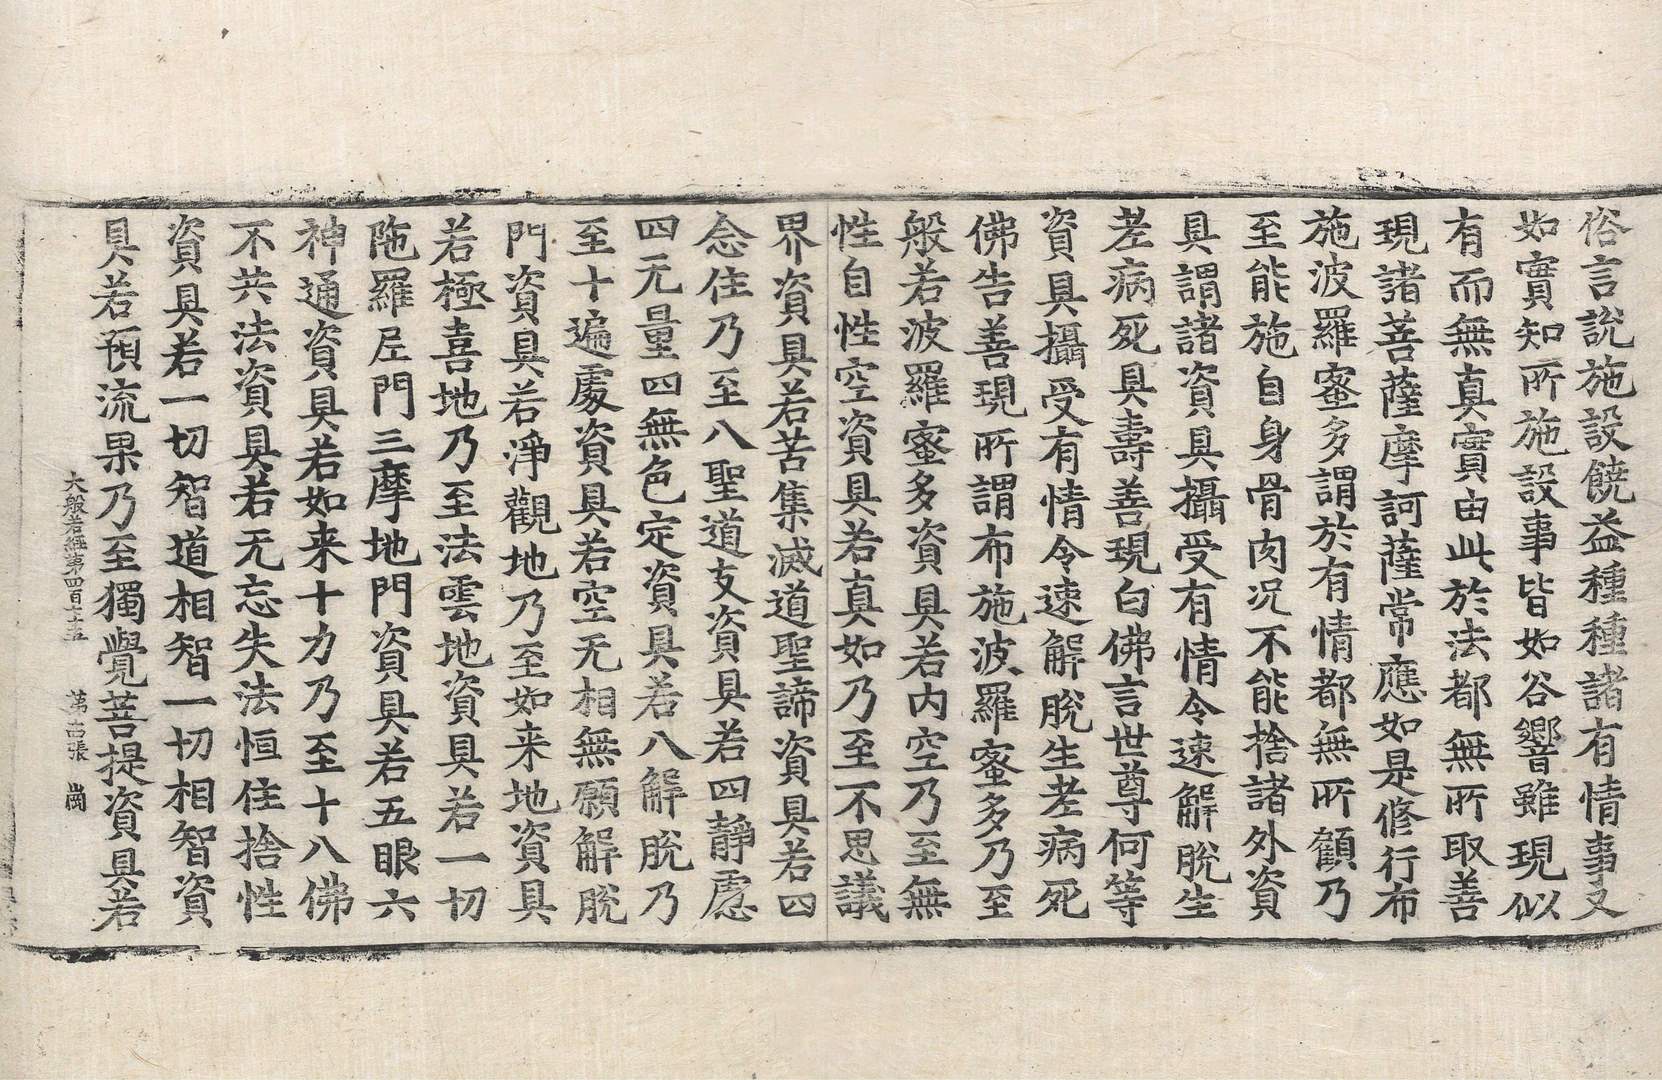 俗言說施設饒益種種諸有情事又
如實知所施設事皆如谷響雖現似
有而無真實由此於法都無所取善
現諸菩薩摩訶薩常應如是修行布
施波羅蜜多謂於有情都無所顧乃
至能施自身骨肉况不能捨諸外資
具謂諸資具攝受有情令速解脫生
老病死具壽善現白佛言世尊何等
資具攝受有情令速解脫生老病死
佛告善現所謂布施波羅蜜多乃至
般若波羅蜜多資具若內空乃至無
性自性空資具若真如乃至不思議
界資具若苦集滅道聖諦資具若四
念住乃至八聖道支資具若四靜慮
四无量四無色定資具若八解脫乃
至十遍處資具若空无相無願解脫
門資具若淨觀地乃至如来地資具
若極喜地乃至法雲地資具若一切
陁羅尼門三摩地門資具若五眼六
神通資具若如来十力乃至十八佛
不共法資具若无忘失法恒住捨性
資具若一切智道相智一切相智資
具若預流果乃至獨覺菩提資具若
大般若經第四百七十五 第十四張 崗